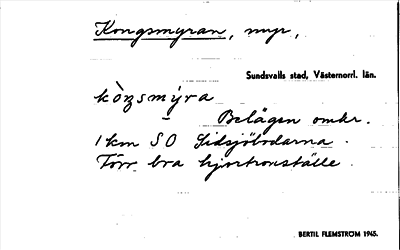 Kongsmyran, myr,
Sundsvalls stad, Västernorrl. län.
kòŋsmýra
Belägen omkr.
1 km SO Sidsjöbodarna.
Förr bra hjortronställe.
BERTIL FLEMSTRÖM 1945.